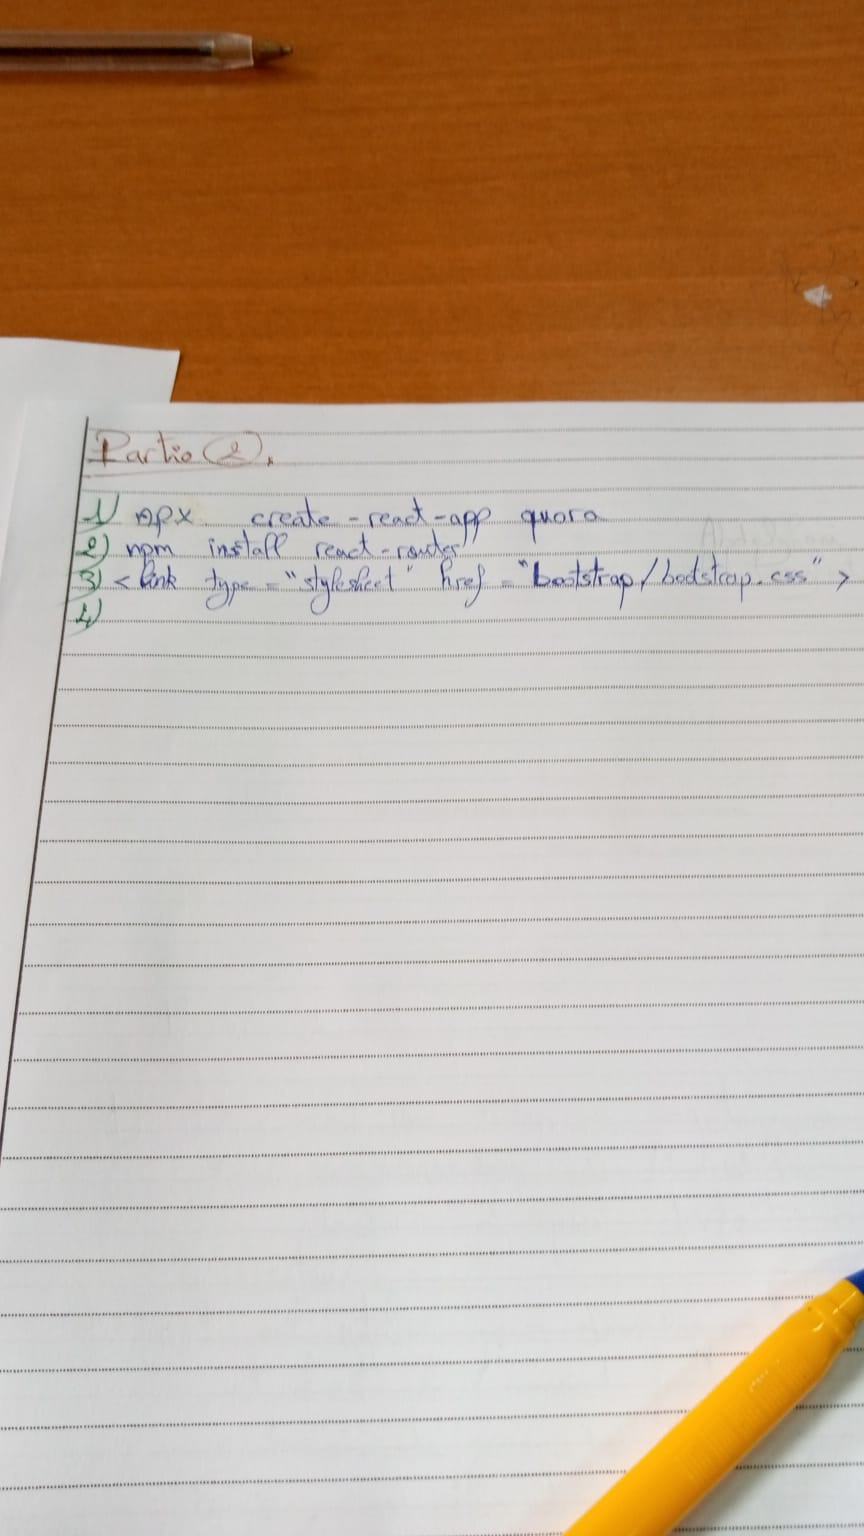 Partie (2).
1) npx create-react-app quora
2) npm install react-router
3) <link type="stylesheet" href="bootstrap/bootstrap.css">
4)